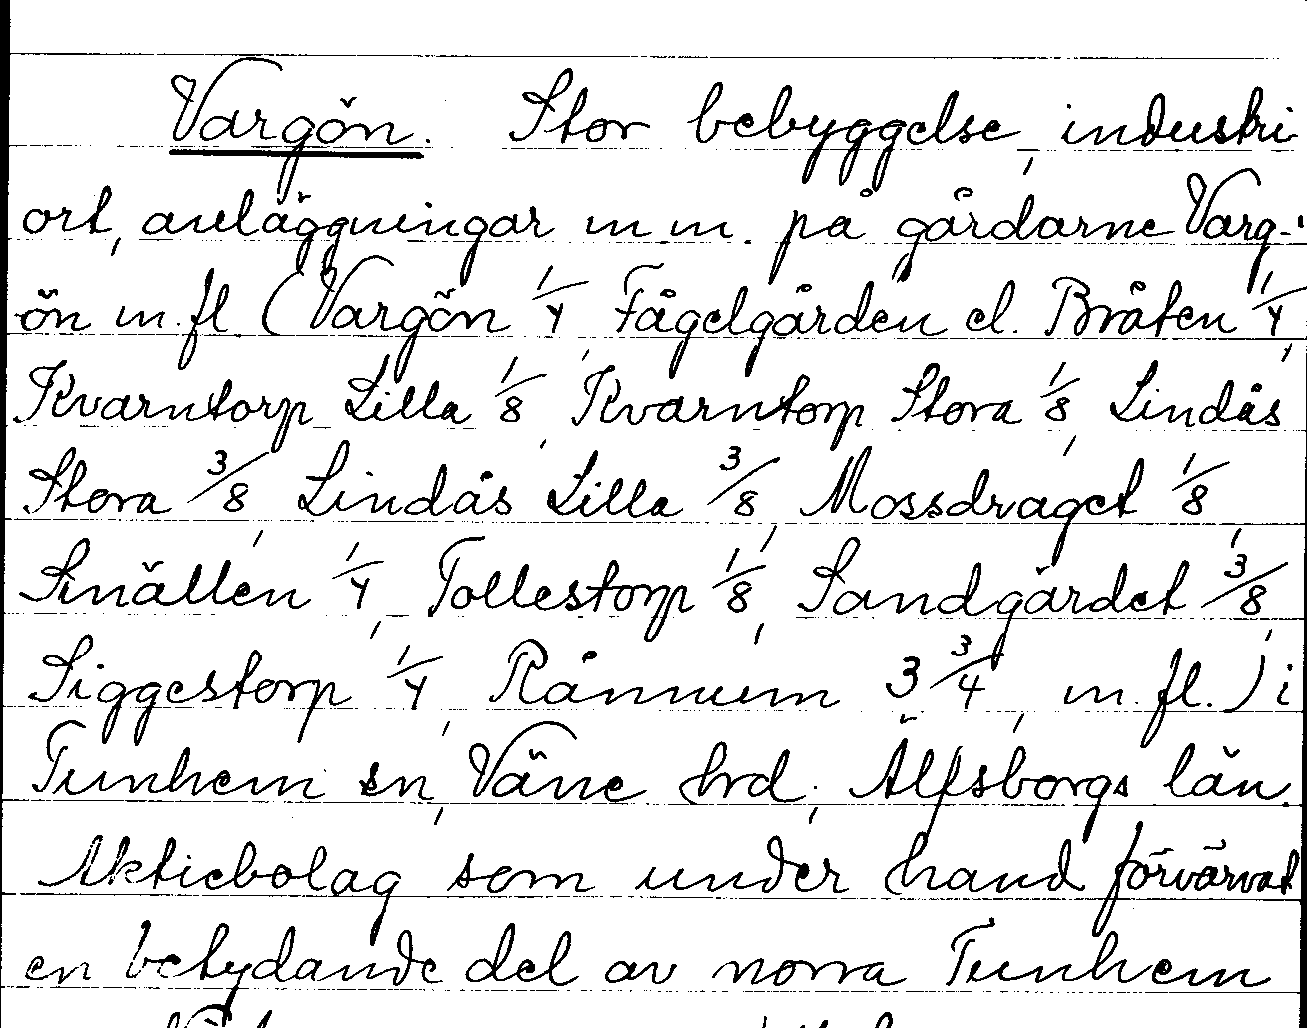 Vargön. Stor bebyggelse, industri
ort, anläggningar m.m. på gårdarne Varg-
ön m.fl. (Vargön 1/4, Fågelgården el. Bråten 1/4,
Kvarntorp Lilla 1/8, Kvarntorp Stora 1/8, Lindås
Stora 3/8, Lindås Lilla 3/8, Mossdraget 1/8,
Smällen 1/4, Tollestorp 1/8, Sandgärdet 3/8,
Siggestorp 1/4, Rånnum 3 3/4, m.fl.) i
Tunhem sn, Väne hrd, Älfsborgs län.
Aktiebolag som under hand förvärvat
en betydande del av norra Tunhem